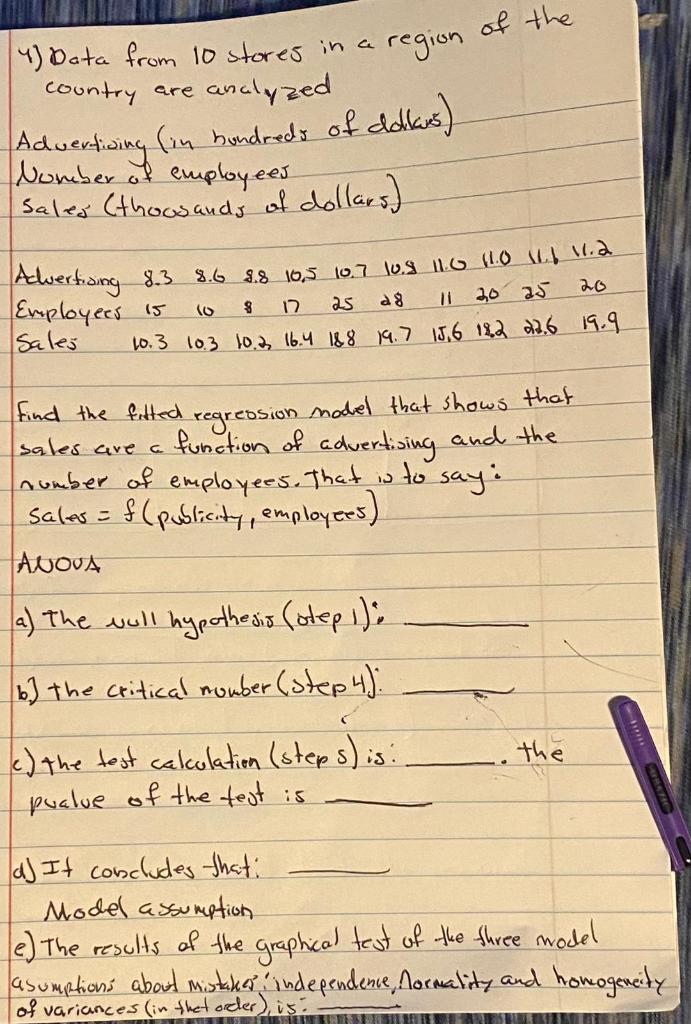 4) Data from 10 stores in a region of the
country are analyzed
Advertising (in hundreds of dollars)
Number of employees
Sales (thousands of dollars)
Advertising 8.3 8.6 8.8 10,5 10.7 10.8 11.0 11.0 11.1 11.2
Employees 15 10 8 17 25 28 11 20 25 20
Sales 10.3 10.3 10.2 16.4 18.8 19.7 15,6 18,2 22.6 19.9
find the fitted regression model that shows that
sales are a function of advertising and the
number of employees. That is to say:
Sales = f(publicity, employees)
ANOVA
a) The null hypothesis (step 1):
b) the critical number (step 4):
c) the test calculation (step 5) is: . the
pvalue of the test is
d) It concludes that:
Model assumption
e) The results of the graphical test of the three model
asumptions about mistakes: independence, Normality and homogeneity
of variances (in that order), is: